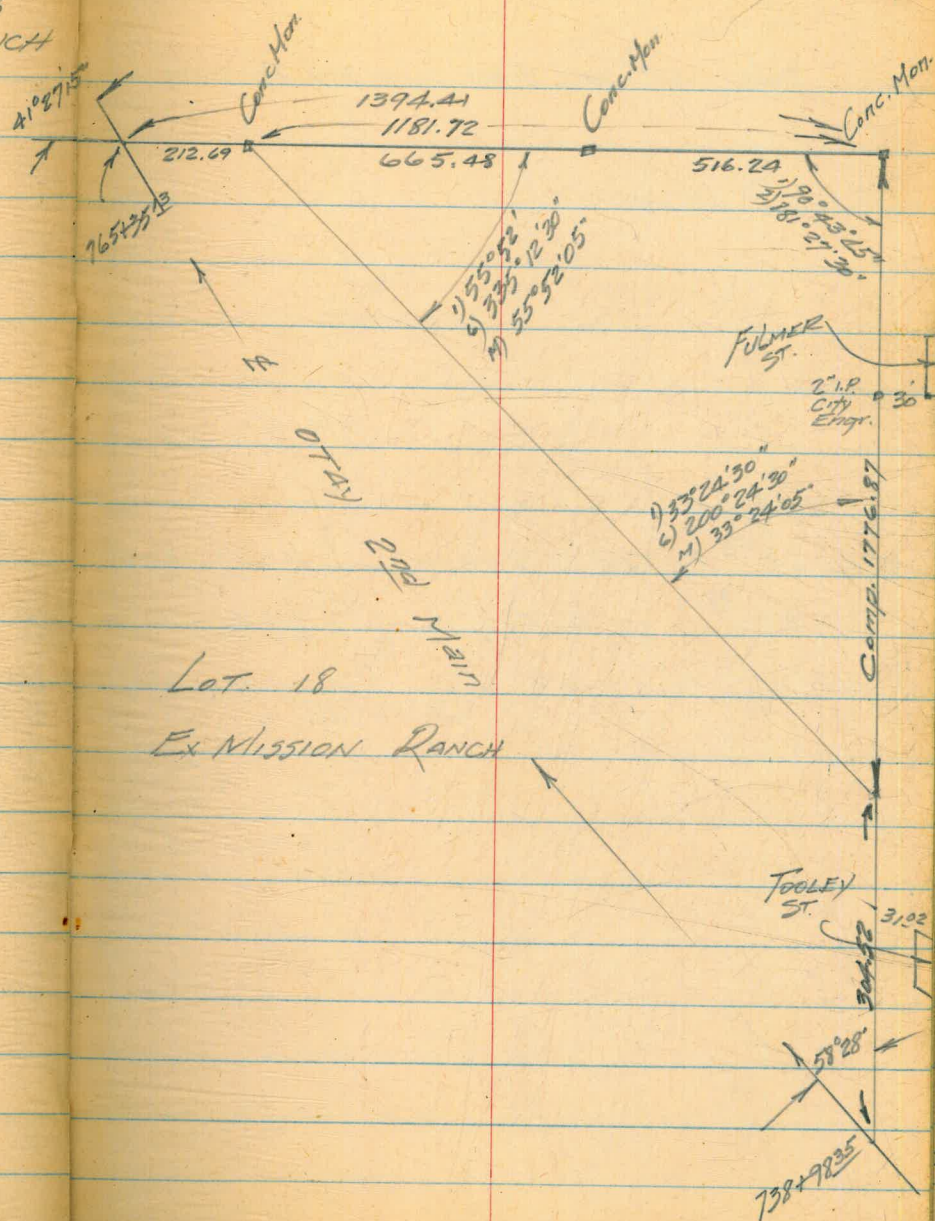 41°27'15"
Conc. Mon.
Conc. Mon.
Conc. Mon.
1394.41
1181.72
212.69
665.48
516.24
765+35 13
1) 90°43'45"
2) 181°27'30"
1) 55°52'
6) 335°12'30"
M) 55°52'05"
FULMER
ST.
2" I.P.
City
Engr.
30'
OTAY
2nd
Main
1) 33°24'30"
6) 200°24'30"
M) 33°24'05"
Comp. 1776.87
LOT. 18
EX MISSION RANCH
TOOLEY
ST.
31.02
304.52
58°28'
738+98 35